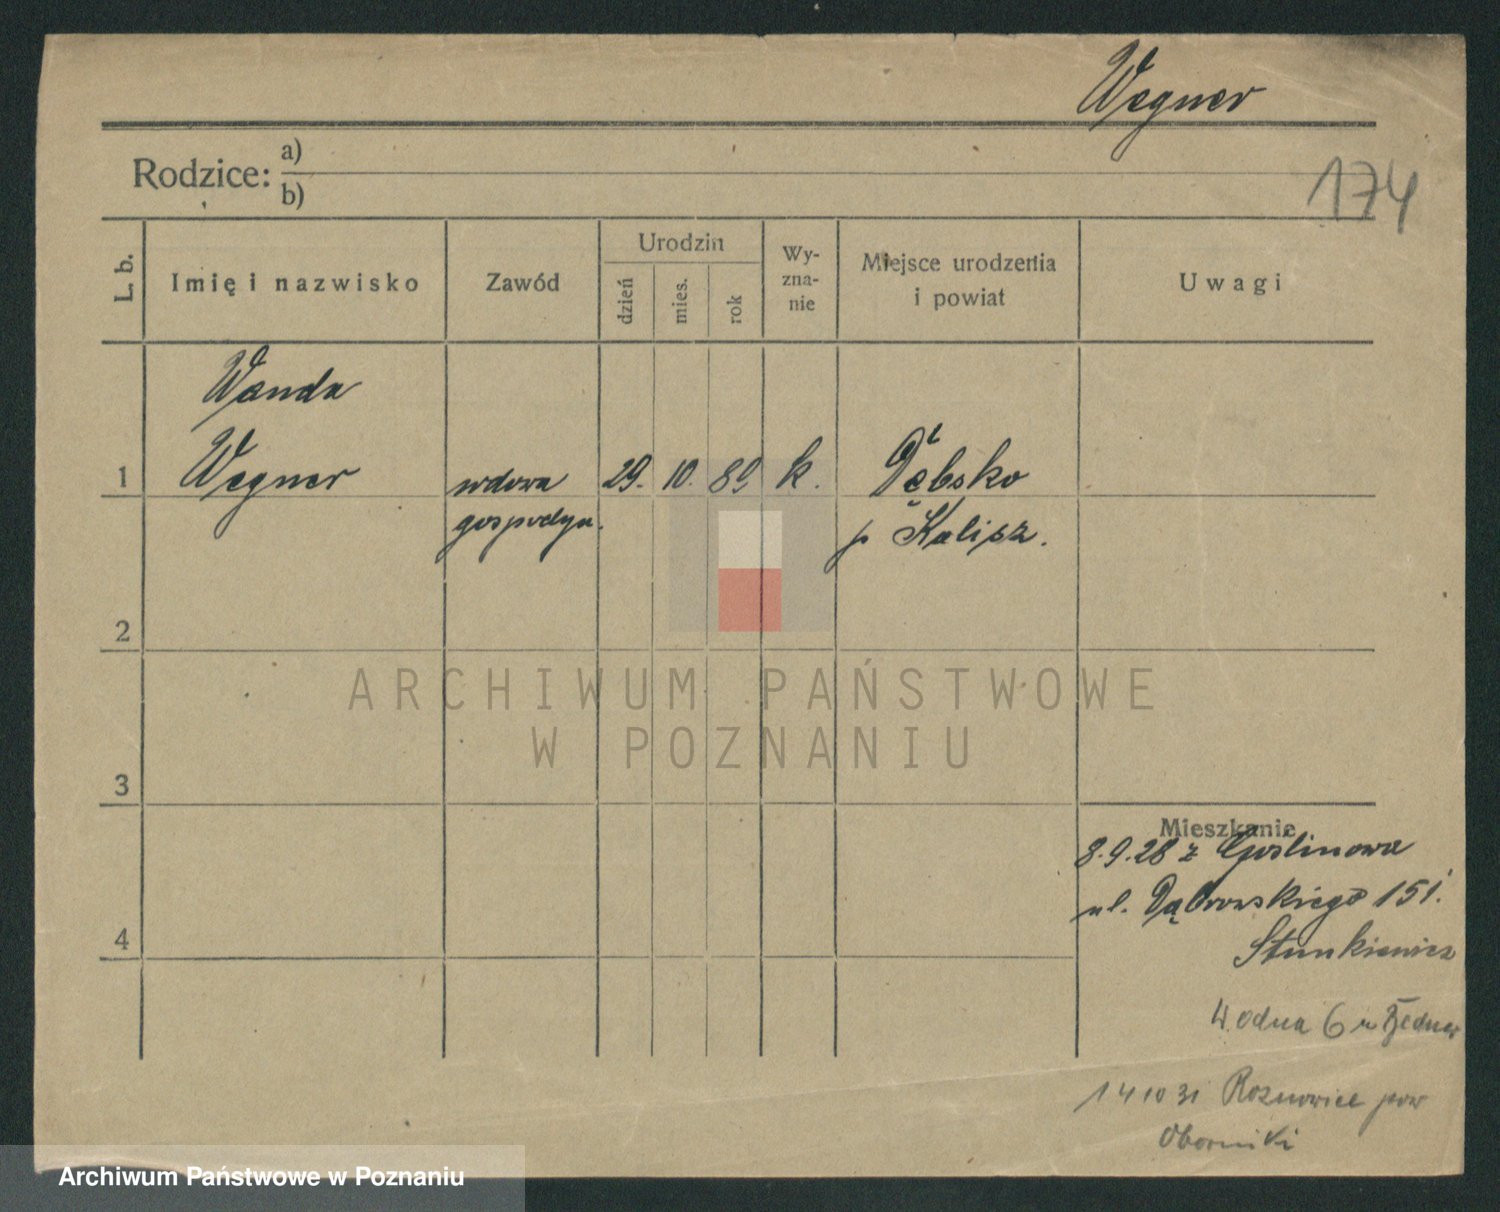 Wegner
Rodzice: a)
b)
174
L. b.
Imię i nazwisko
Zawód
Urodzin
dzień
mies.
rok
Wy-
zna-
nie
Miejsce urodzenia
i powiat
Uwagi
Wanda
1 Wegner wdowa 29. 10. 89 k. Dębsko
gospodyn. p Kalisz.
2
3
4
Mieszkanie
8.9.28 z Goslinowa
ul. Dąbrowskiego 151.
Stunkiewicz
Wodna 6 u
14 10 31 Roznowice pow
Oborniki
ARCHIWUM PAŃSTWOWE
W POZNANIU
Archiwum Państwowe w Poznaniu